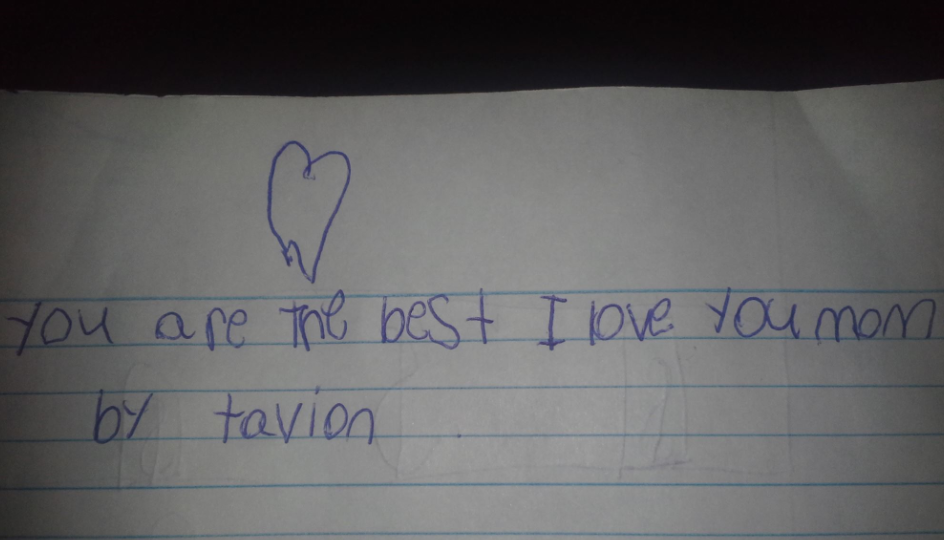 you are the best I love you mom
by tavion